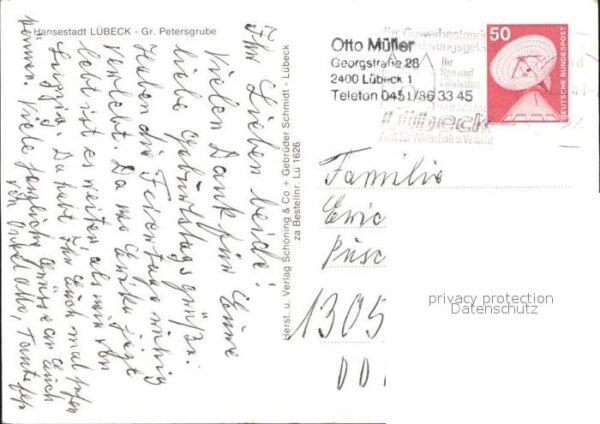 Hansestadt LÜBECK - Gr. Petersgrube
Ihr Lieben beide!
Vielen Dank für Eure
liebe Geburtstagsgrüße.
Haben die Feiertage ruhig
verlebt. Da wo Erika jetzt
lebt ist es weiter, als wir von
Leipzig. Da habt Ihr Euch mal sehen
können. Viele herzliche Grüsse an Euch
von Onkel Otto, Tante
Herst. u. Verlag Schöning & Co + Gebrüder Schmidt - Lübeck
za Bestellnr. Lü 1626
Otto Müller
Georgstraße 28
2400 Lübeck 1
Telefon 0451/86 33 45
Ihr Gewerbestandort
Ihr
Lübeck
Amt für Wirtschaft u. Verkehr
50
DEUTSCHE BUNDESPOST
Familie
Eric
Püsc
1305
DD
privacy protection
Datenschutz